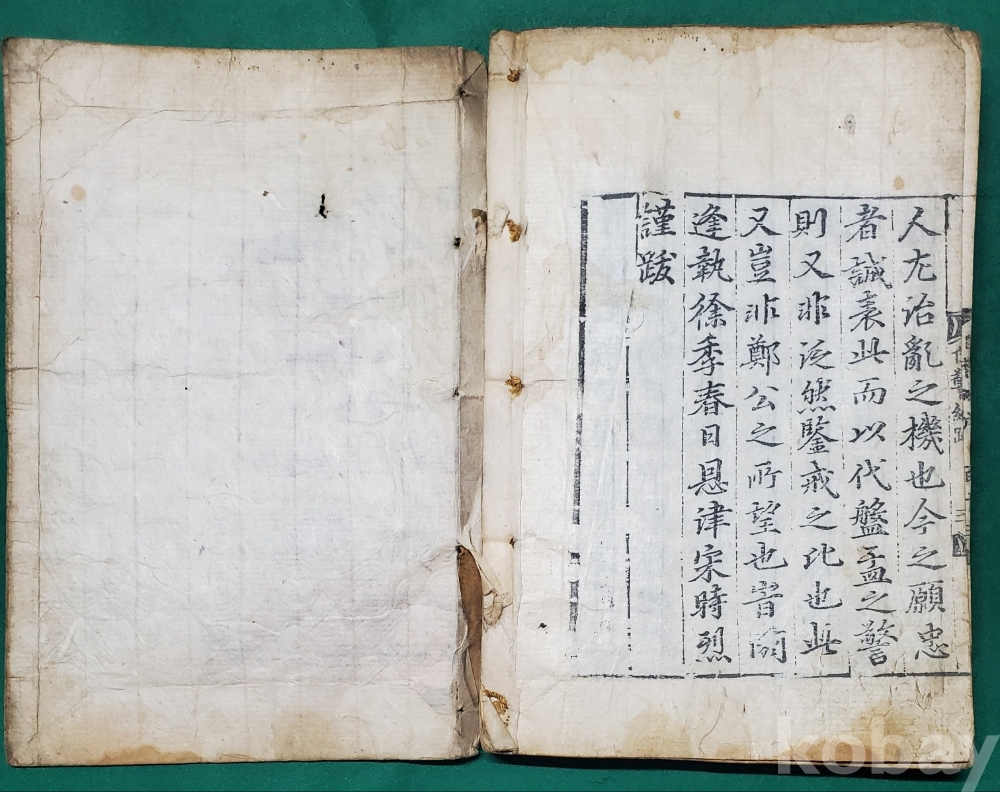 人尤治亂之機也今之願忠
者誠表此而以代盤盂之警
則又非泛然鑒戒之比也此
又豈非鄭公之所望也耶閼
逢執徐季春日恩津宋時烈
謹跋
kobay